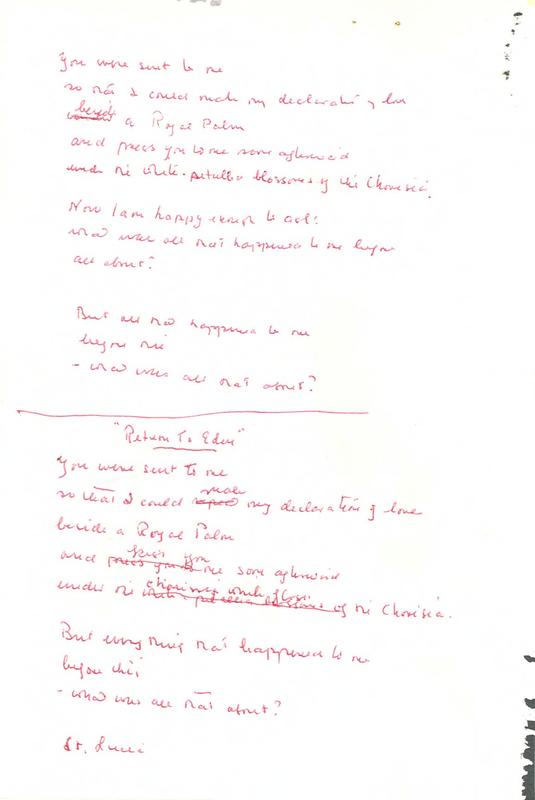 You were sent to me
so that I could make my declaration of love
beside a Royal Palm
and press you to me some afternoon
under the white-petalled blossoms of the Chorisia.
Now I am happy enough to ask:
what was all that happened to me before
all about?
But all that happened to me
before this
- what was all that about?
"Return To Eden"
You were sent to me
so that I could make my declaration of love
beside a Royal Palm
and press you to me some afternoon
under the white flowers of the Chorisia.
But everything that happened to me
before this
- what was all that about?
St. Lucia